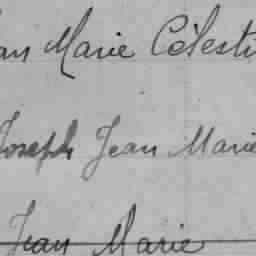 Jean Marie Célesti
Joseph Jean Marie
Jean Marie